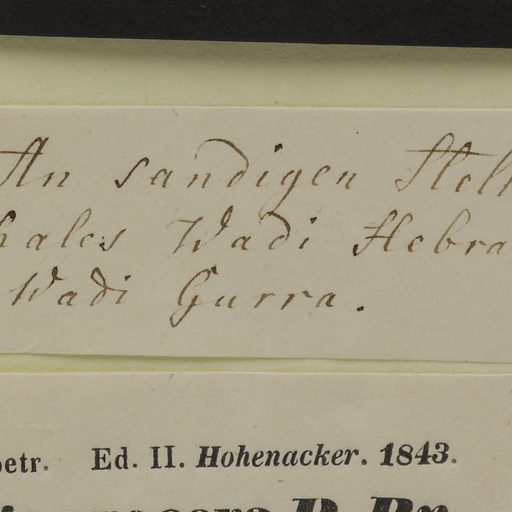 An sandigen Stell
hales Wadi Hebra
Wadi Gurra.
petr. Ed. II. Hohenacker. 1843.